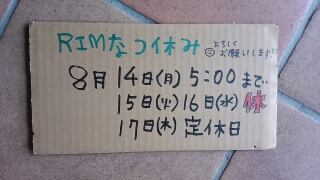 RIMなつ休み
よろしく
お願いします!
8月 14日(月) 5:00まで
15日(火) 16日(水) 休
17日(木) 定休日